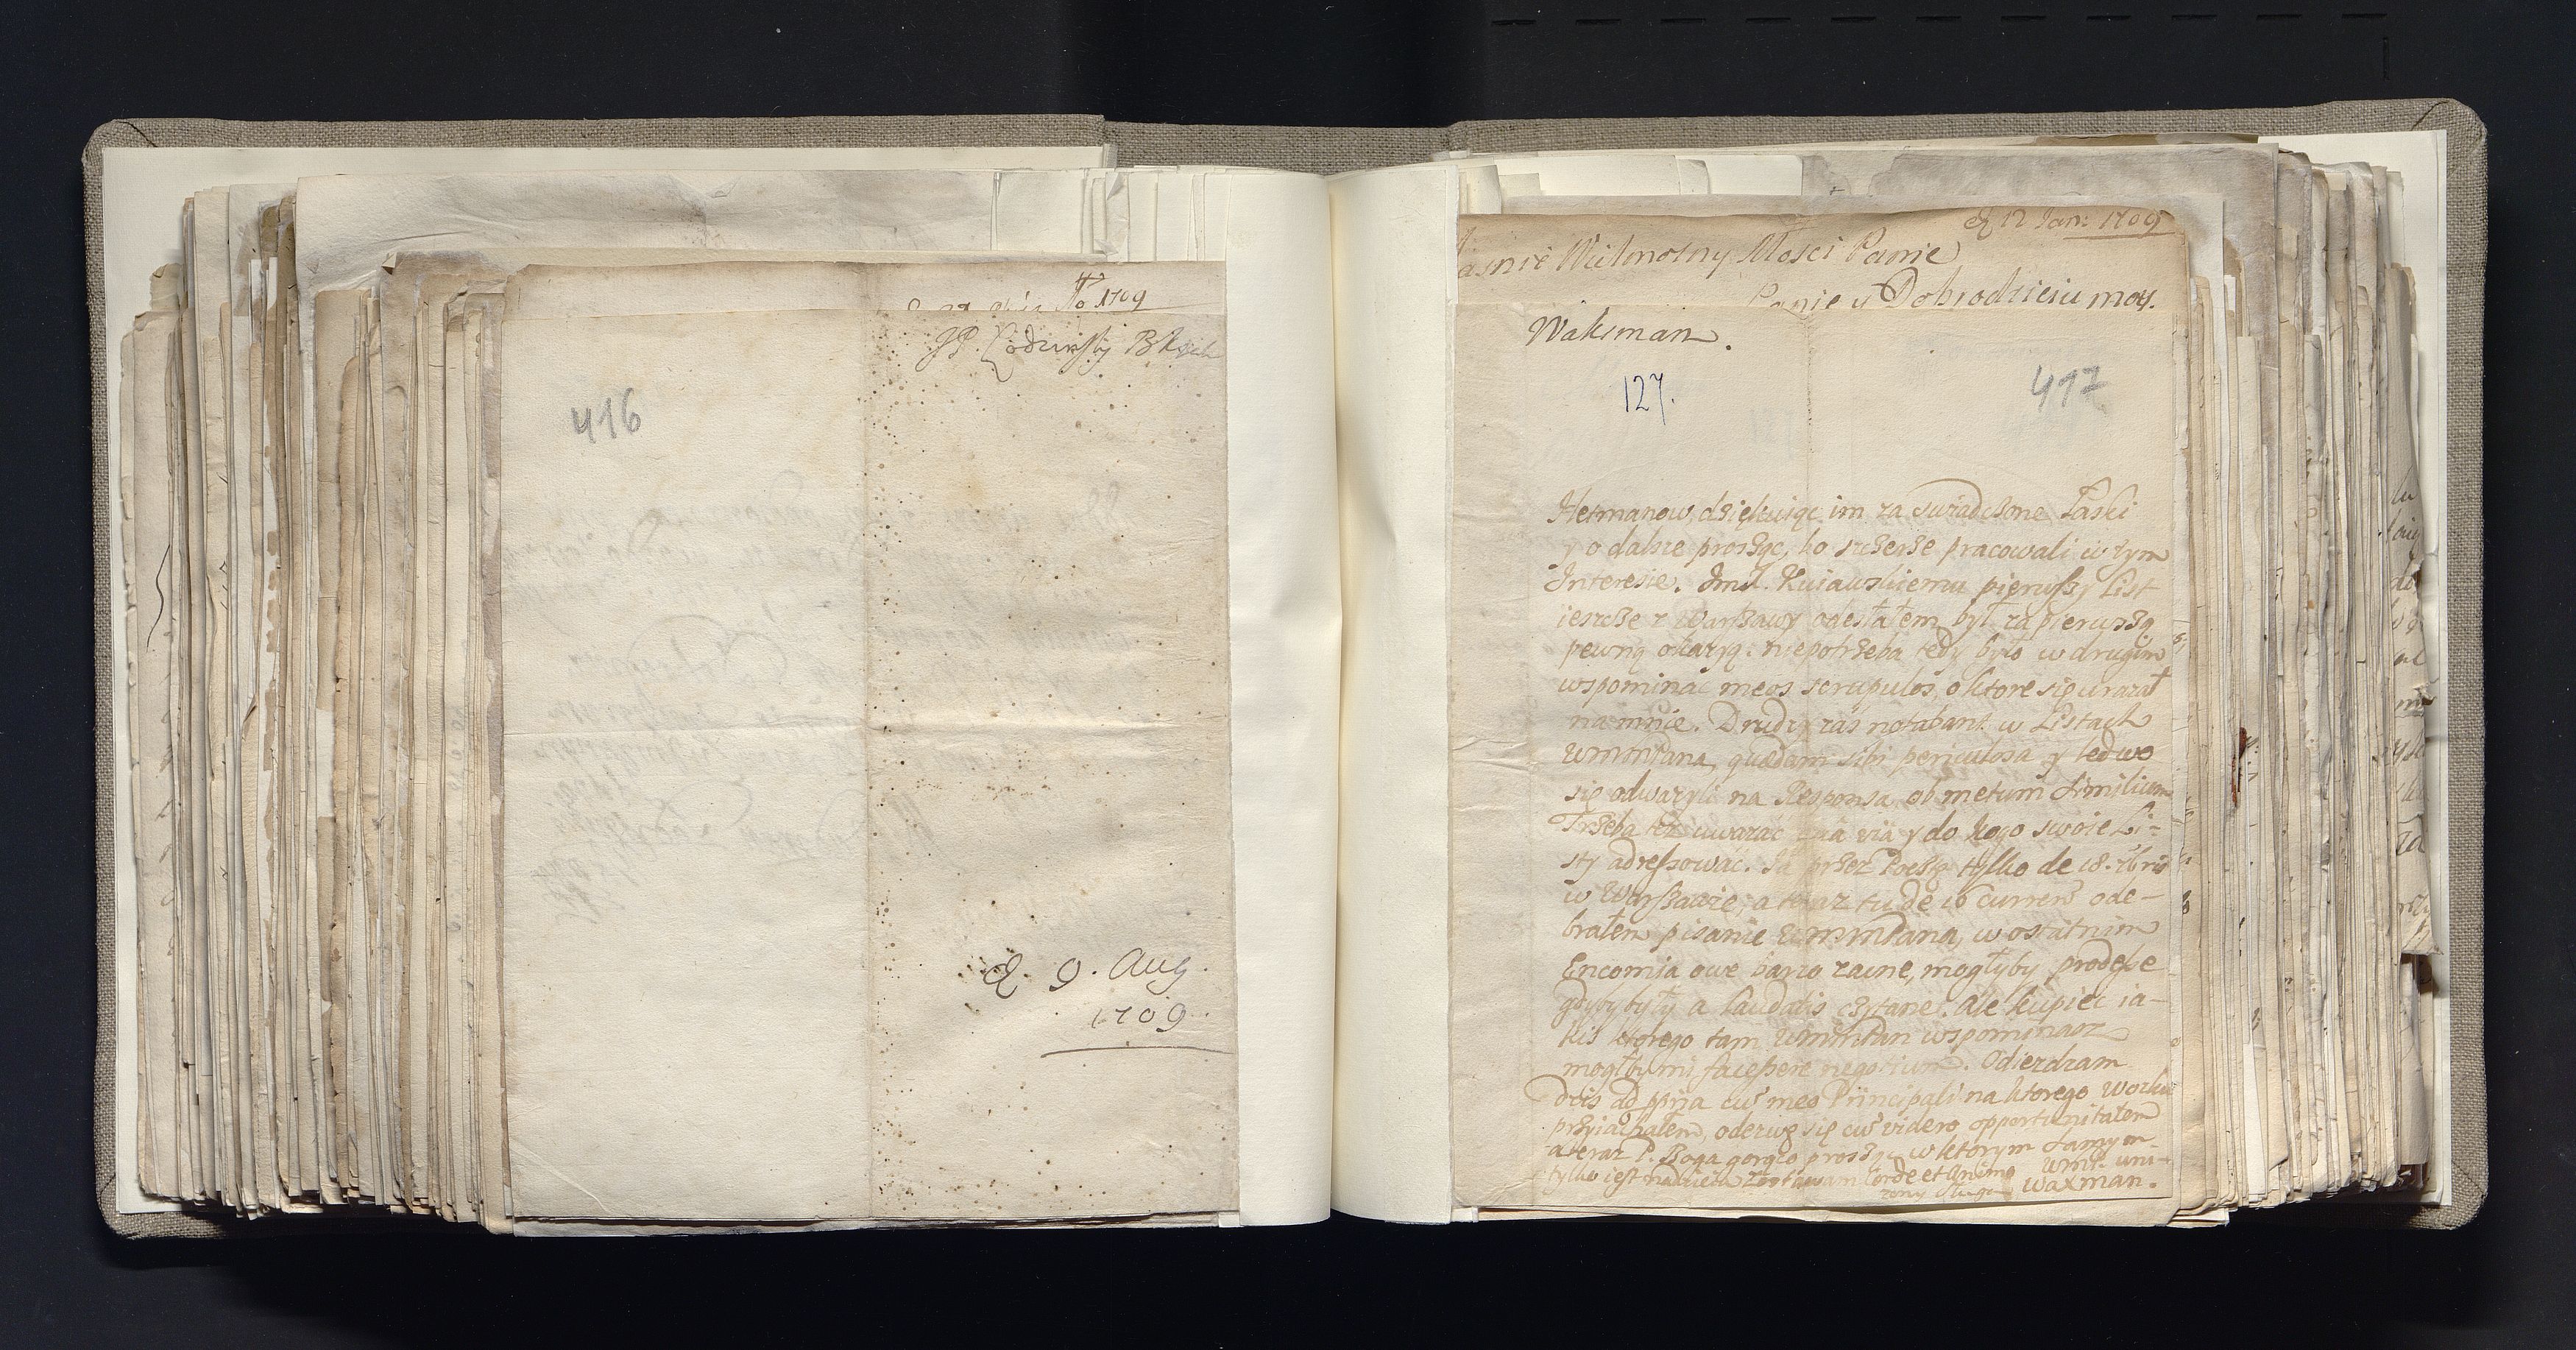 1709
JP.
416
9. Aug.
1709.
12 Jan: 1709
Wielmozny Mosci Panie
Panie y Dobrodzieiu moy.
Waksman.
127.
417
Hetmanow, dziękuiąc im za swiadczone Łaski
y o dalsze prosząc, bo szczerze pracowali w tym
Interesie. Kuiawskiemu pierwszy List
ieszcze z Warszawy odesłałem był za pierwszą
pewną okazyą. niepotrzeba tedy było w drugim
wspominać meos scrupulos, o ktore się urazał
na mnie. Drudzy zas notabant w Listach
quædam sibi periculosa y ledwo
się odwazyli na Responsa, ob metum similium
Trzeba tez uwazac qua via y do kogo swoie Li=
sty adressować. Ja przez Poesztę tylko de 18.
w Warszawie, a teraz tu de 16 curren ode-
brałem pisanie w ostatnim
Encomia owe barzo zacne, mogłyby prodesse
gdyby były a laudatis czytane. Ale kupiec ia-
kis ktorego tam wspominasz
mogłby mi facessere negotium. Odiezdzam
cum meo Principali na ktorego
przyiachałem, oderwę się cum videro opportunitatem
a teraz P. Boga gorąco proszę w ktorym samym
tylko iest nadzieia zostawam Corde et Animo
sługa Waxman.